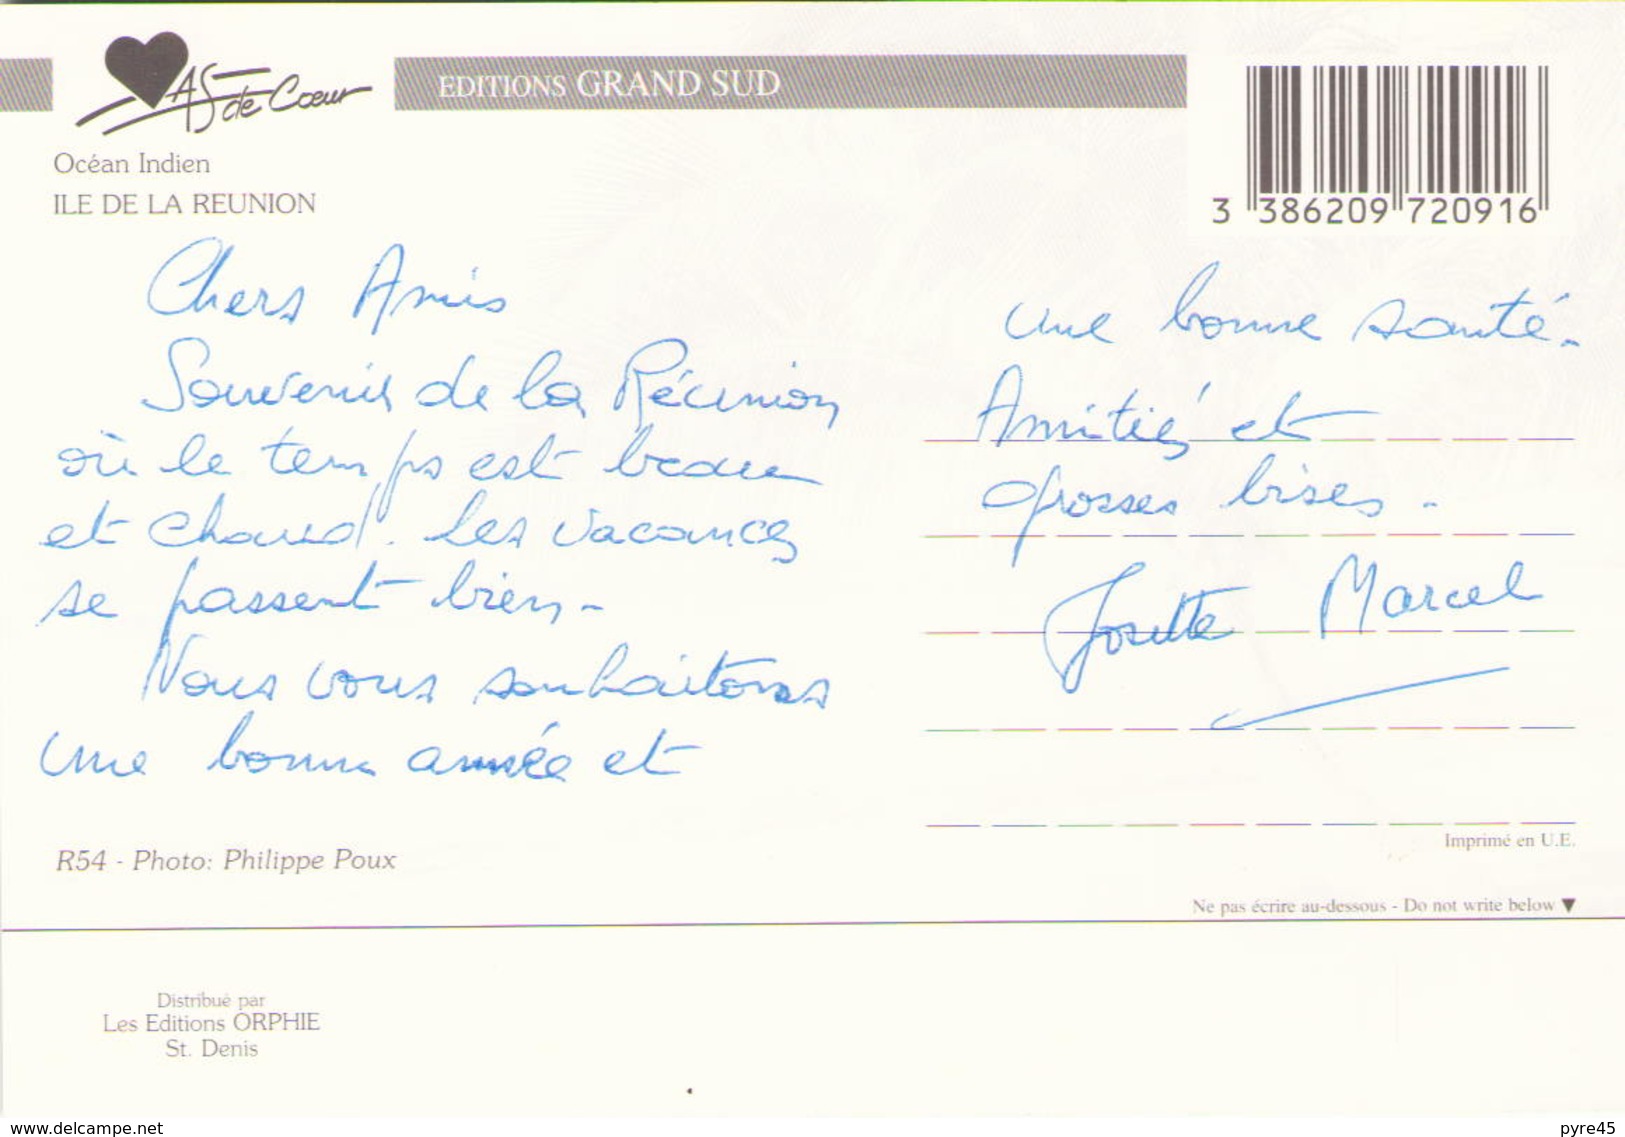 AS de Cœur
EDITIONS GRAND SUD
Océan Indien
ILE DE LA REUNION
3 386209 720916
Chers Amis
Souvenir de la Réunion
où le temps est beau
et chaud. Les vacances
se passent bien -
Nous vous souhaitons
une bonne année et
une bonne santé.
Amitiés et
grosses bises.
Josette Marcel
R54 - Photo: Philippe Poux
Imprimé en U.E.
Ne pas écrire au-dessous - Do not write below ▼
Distribué par
Les Editions ORPHIE
St. Denis
www.delcampe.net
pyre45